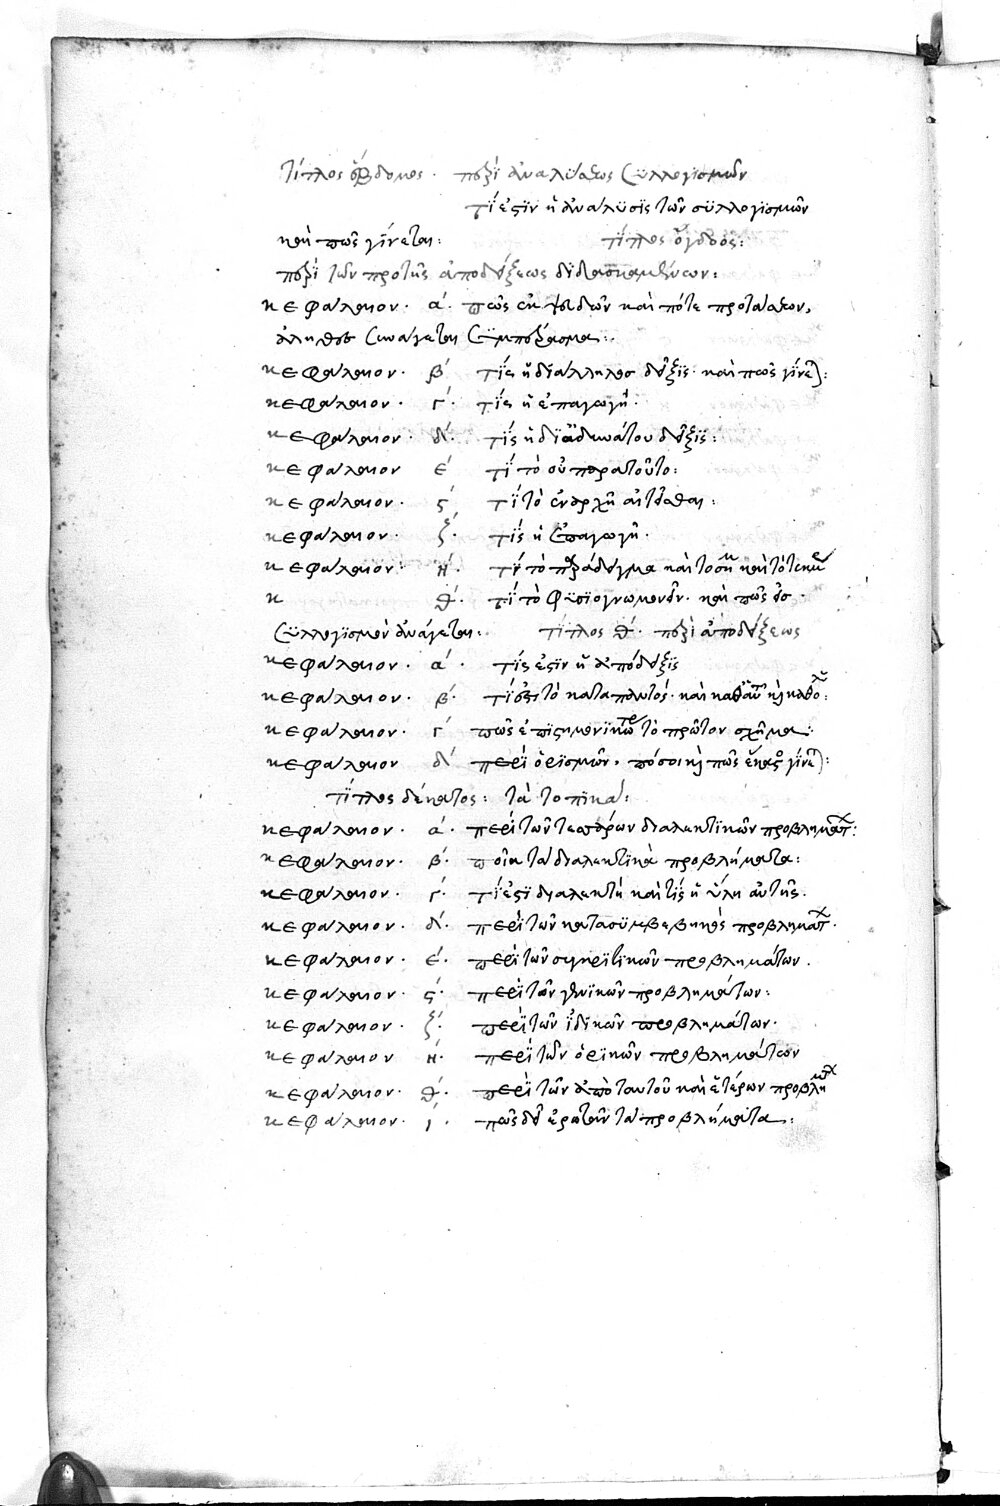 τίτλος ἕβδομος · περὶ ἀναλύσεως συλλογισμῶν
τί ἐστιν ἡ ἀνάλυσις τῶν συλλογισμῶν
καὶ πῶς γίνεται: τίτλος ὄγδοος:
περὶ τῶν πρὸ τῆς ἀποδείξεως διδασκομένων:
κεφάλαιον · α΄ · πῶς ἐκ ψευδῶν καὶ πότε προτάσεων,
ἀληθὲς συνάγεται συμπέρασμα:
κεφάλαιον · β΄ τίς ἡ διάλληλος δεῖξις · καὶ πῶς γίνεται:
κεφάλαιον · γ΄ · τίς ἡ ἐπαγωγή ·
κεφάλαιον · δ΄ · τίς ἡ δι ἀδυνάτου δεῖξις:
κεφάλαιον ε΄ τί τὸ οὐ παρα τοῦτο:
κεφάλαιον · ς΄ τί τὸ ἐν ἀρχῇ αἰτεῖσθαι:
κεφάλαιον · ζ΄ · τίς ἡ ἐπαγωγή ·
κεφάλαιον · η΄ · τί τὸ παράδειγμα καὶ τὸ σημ καὶ τὸ τεκμ
κ θ΄ · τί τὸ φυσιογνωμονεῖν · καὶ πῶς εἰς ·
συλλογισμὸν ἀνάγεται: τίτλος θ΄ · περὶ ἀποδείξεως
κεφάλαιον · α΄ · τίς ἐστιν ἡ ἀπόδειξις
κεφάλαιον · β΄ · τί ἐστι τὸ κατα παντός · καὶ καθ αὑτὸ καὶ καθόλου:
κεφάλαιον · γ΄ πῶς ἐπιστημονικώτερον τὸ πρῶτον σχῆμα:
κεφάλαιον δ΄ περὶ ὁρισμῶν · πόσοι καὶ πῶς ἕκαστος γίνεται:
τίτλος δέκατος: τὰ τοπικά:
κεφάλαιον · α΄ · περὶ τῶν τεσσάρων διαλεκτικῶν προβλημάτ:
κεφάλαιον · β΄ · ποῖα τὰ διαλεκτικὰ προβλήματα:
κεφάλαιον · γ΄ · τί ἐστι διαλεκτικὴ καὶ τίς ἡ ὕλη αὐτῆς ·
κεφάλαιον · δ΄ · περὶ τῶν κατα συμβεβηκὸς προβλημάτ ·
κεφάλαιον · ε΄ · περὶ τῶν συγκριτικῶν προβλημάτων ·
κεφάλαιον · ς΄ · περὶ τῶν γενικῶν προβλημάτων:
κεφάλαιον · ζ΄ · περὶ τῶν ἰδικῶν προβλημάτων ·
κεφάλαιον η΄ · περὶ τῶν ὁρικῶν προβλημάτων
κεφάλαιον · θ΄ · περὶ τῶν ἀπὸ ταυτοῦ καὶ ἑτέρων προβλημάτ
κεφάλαιον · ι΄ · πῶς δεῖ ἐρωτᾶν τὰ προβλήματα: